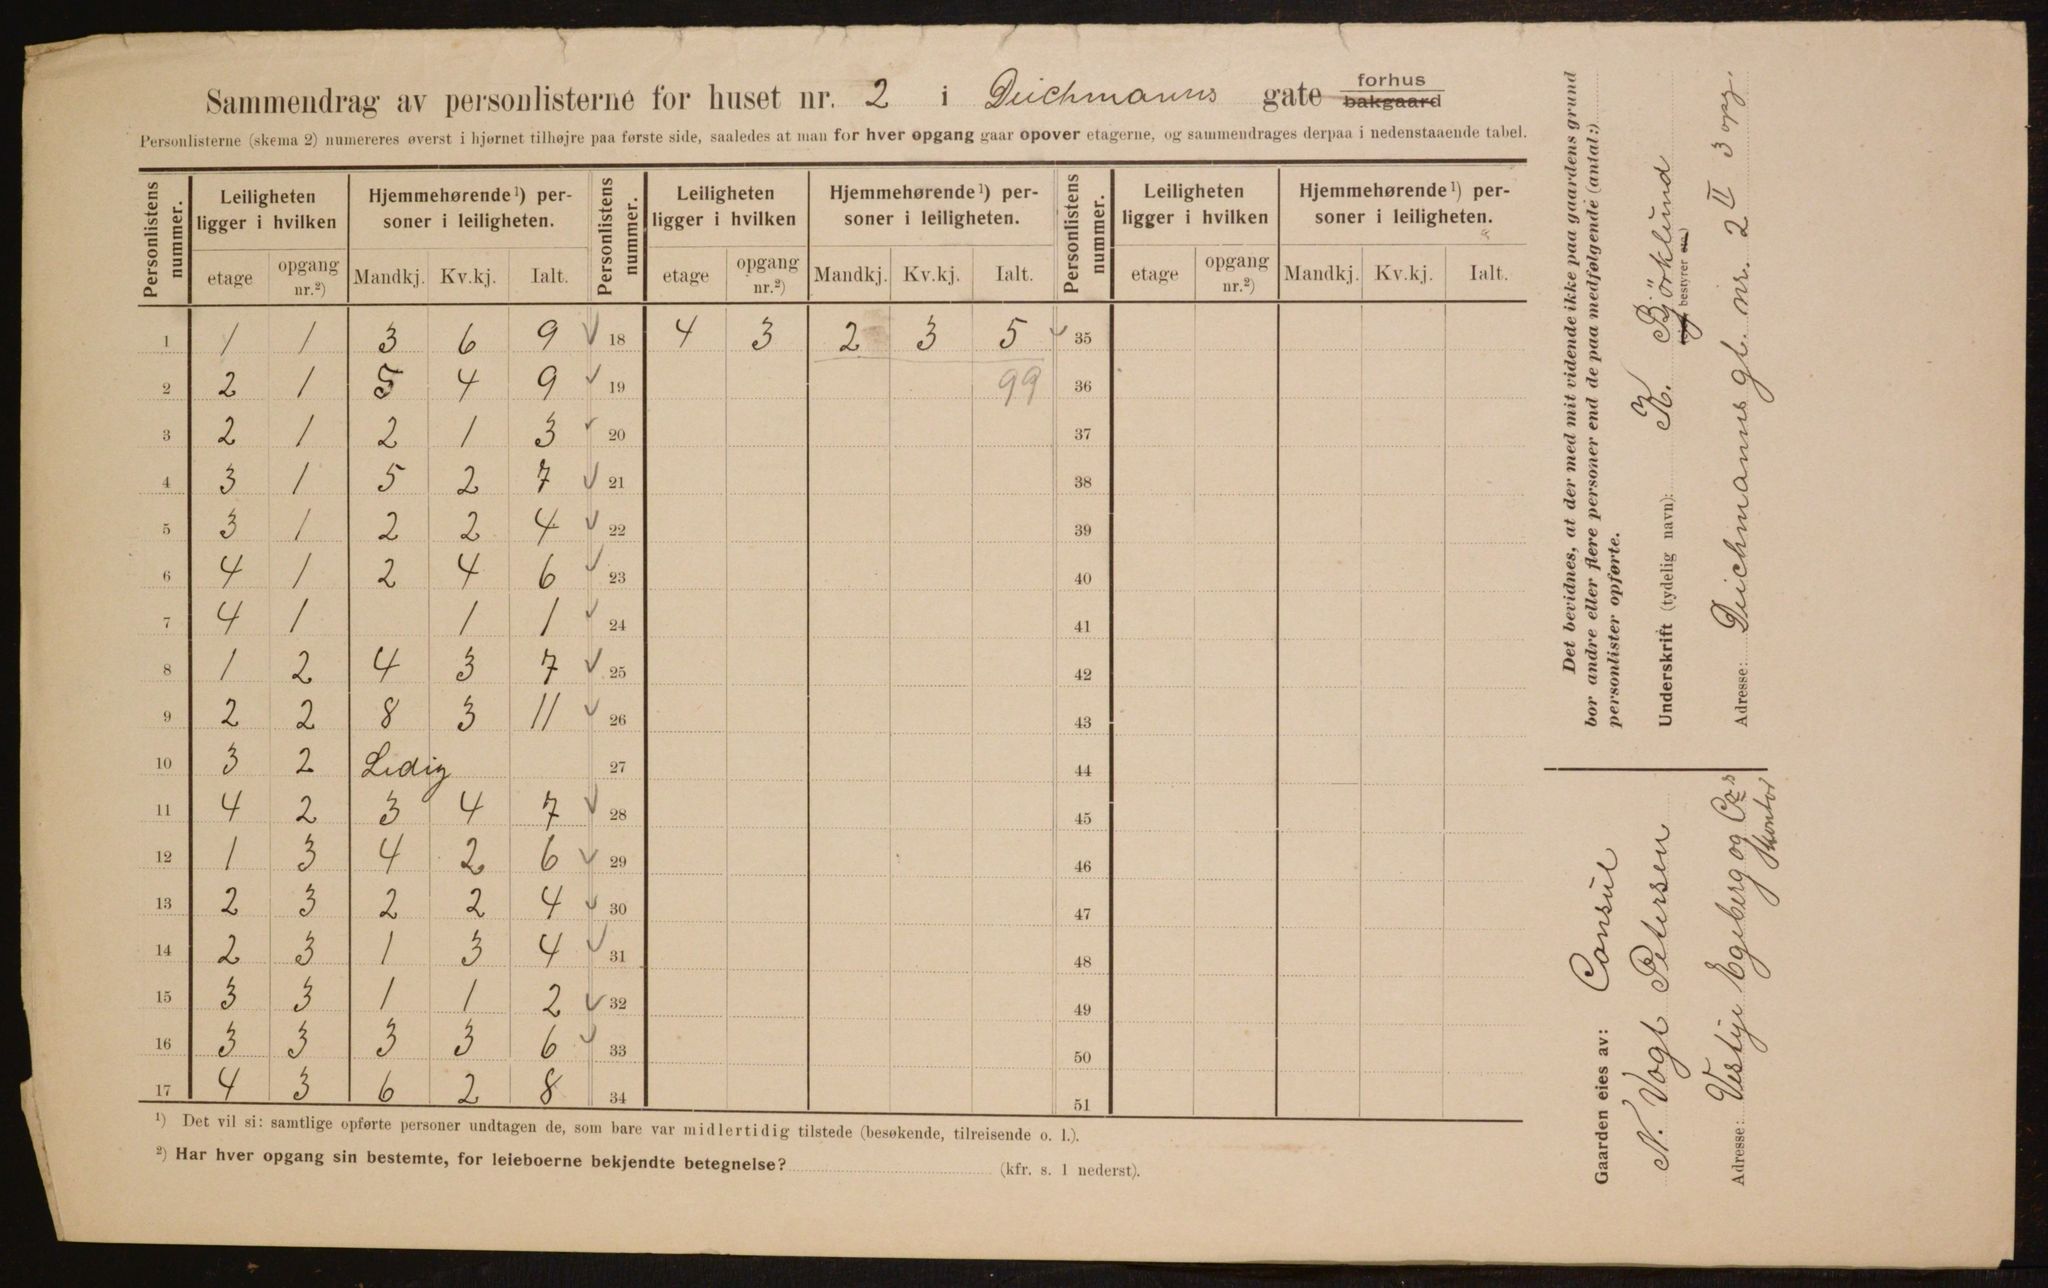 Sammendrag av personlisterne for huset nr. 2 i Deichmanns gate forhus bakgaard
Personlisterne (skema 2) numereres øverst i hjørnet tilhøjre paa første side, saaledes at man for hver opgang gaar opover etagerne, og sammendrages derpaa i nedenstaaende tabel.
Personlistens nummer. Leiligheten ligger i hvilken Hjemmehørende ¹) personer i leiligheten. Personlistens nummer. Leiligheten ligger i hvilken Hjemmehørende ¹) personer i leiligheten. Personlistens nummer. Leiligheten ligger i hvilken Hjemmehørende ¹) personer i leiligheten.
etage opgang nr.²) Mandkj. Kv.kj. Ialt. etage opgang nr.²) Mandkj. Kv.kj. Ialt. etage opgang nr.²) Mandkj. Kv.kj. Ialt.
1 1 1 3 6 9 18 4 3 2 3 5 35
2 2 1 5 4 9 19 99 36
3 2 1 2 1 3 20 37
4 3 1 5 2 7 21 38
5 3 1 2 2 4 22 39
6 4 1 2 4 6 23 40
7 4 1 1 1 24 41
8 1 2 4 3 7 25 42
9 2 2 8 3 11 26 43
10 3 2 Ledig 27 44
11 4 2 3 4 7 28 45
12 1 3 4 2 6 29 46
13 2 3 2 2 4 30 47
14 2 3 1 3 4 31 48
15 3 3 1 1 2 32 49
16 3 3 3 3 6 33 50
17 4 3 6 2 8 34 51
¹) Det vil si: samtlige opførte personer undtagen de, som bare var midlertidig tilstede (besøkende, tilreisende o. l.).
²) Har hver opgang sin bestemte, for leieboerne bekjendte betegnelse? (kfr. s. 1 nederst).
Det bevidnes, at der med mit vidende ikke paa gaardens grund
bor andre eller flere personer end de paa medfølgende (antal:)
personlister opførte.
Underskrift (tydelig navn): K. Björklund
bestyrer
Adresse: Deichmanns gt. nr. 2 II 3 opg.
Gaarden eies av: Consul
N. Vogt Petersen
Adresse: Vestye Egeberg og Co.s
Kontor